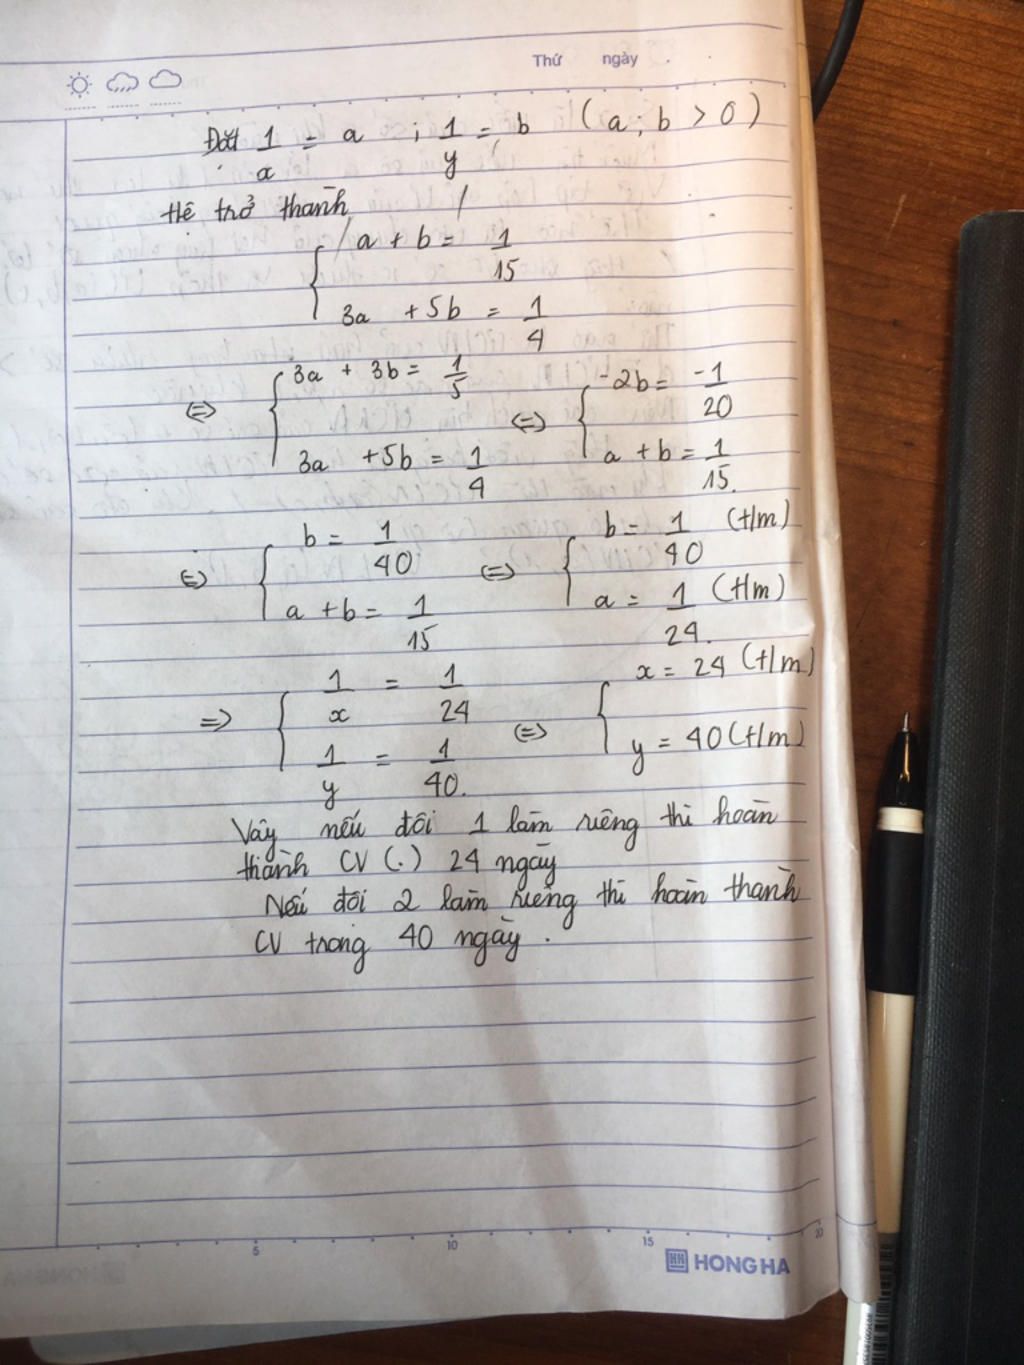 Thứ ngày
Đặt 1/x = a ; 1/y = b (a ; b > 0)
Hệ trở thành
{ a + b = 1/15
3a + 5b = 1/4
<=> { 3a + 3b = 1/5 <=> { -2b = -1/20
3a + 5b = 1/4 a + b = 1/15.
<=> { b = 1/40 <=> { b = 1/40 (t/m)
a + b = 1/15 a = 1/24. (t/m)
=> { 1/x = 1/24 <=> { x = 24 (t/m)
1/y = 1/40. y = 40 (t/m)
Vậy nếu đội 1 làm riêng thì hoàn
thành CV (.) 24 ngày
Nếu đội 2 làm riêng thì hoàn thành
CV trong 40 ngày.
5 10 15 20
HH HONG HA